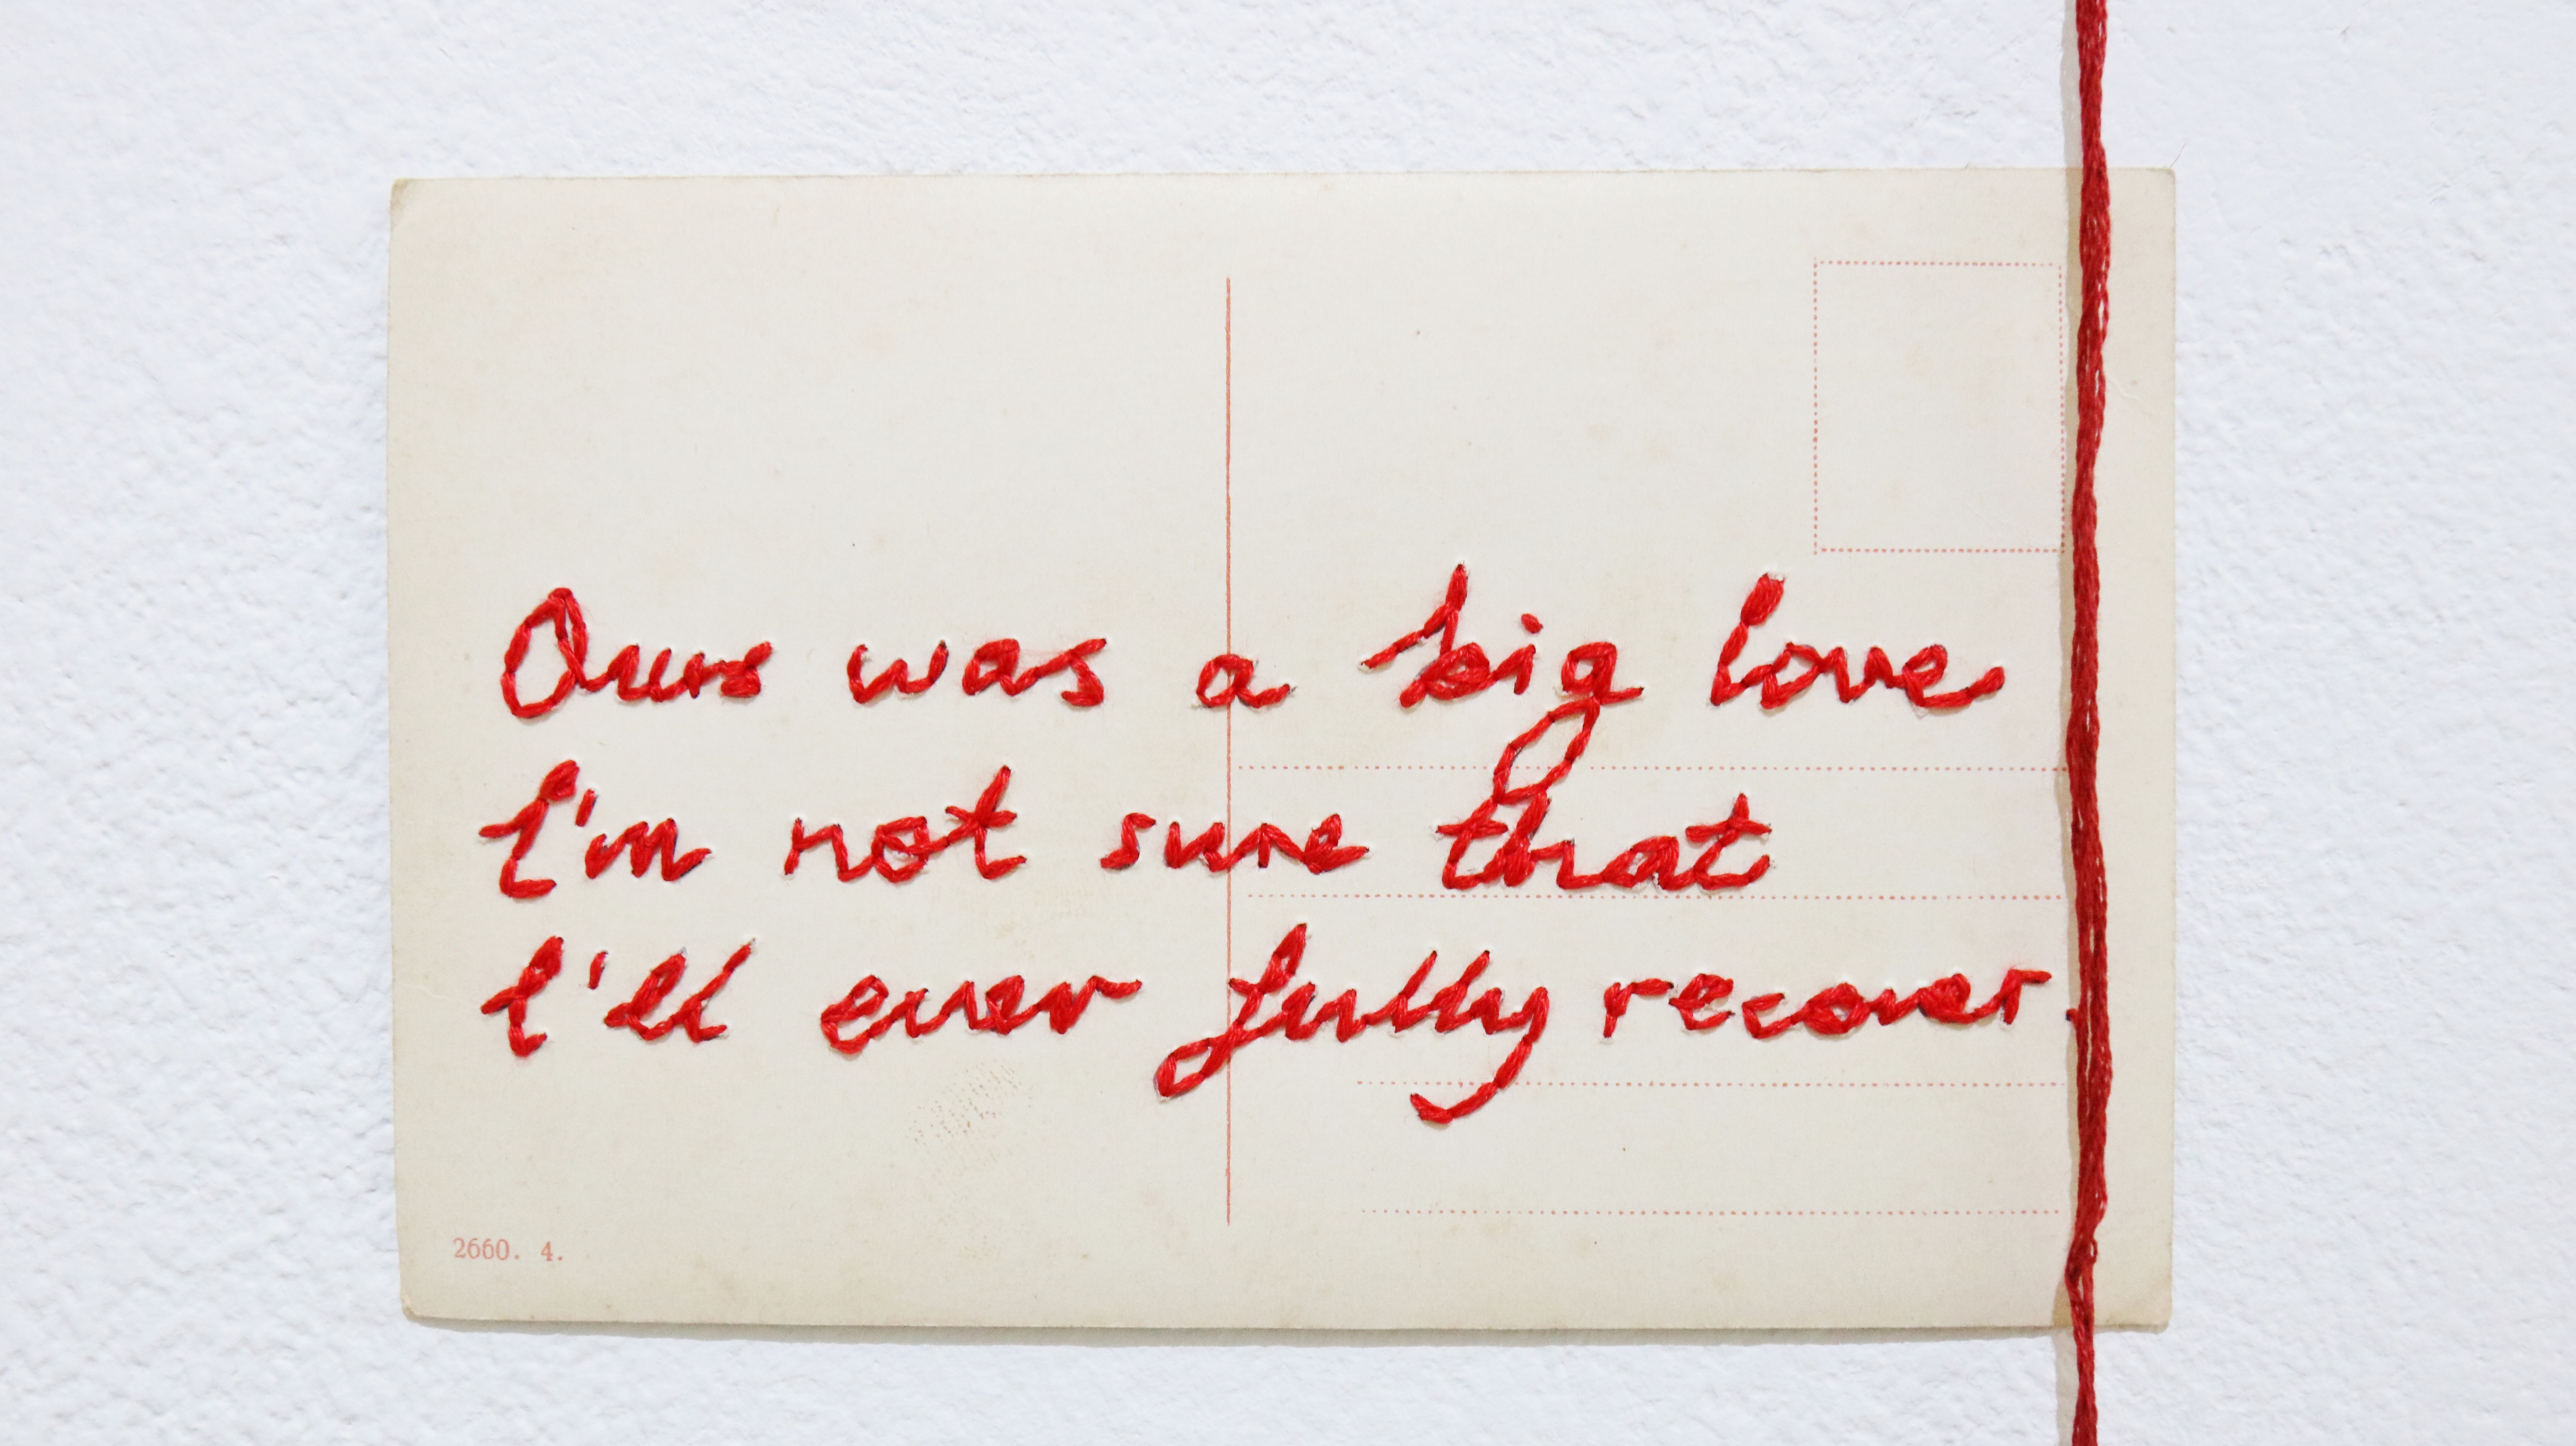 Ours was a big love
I'm not sure that
I'll ever fully recover.
2660. 4.